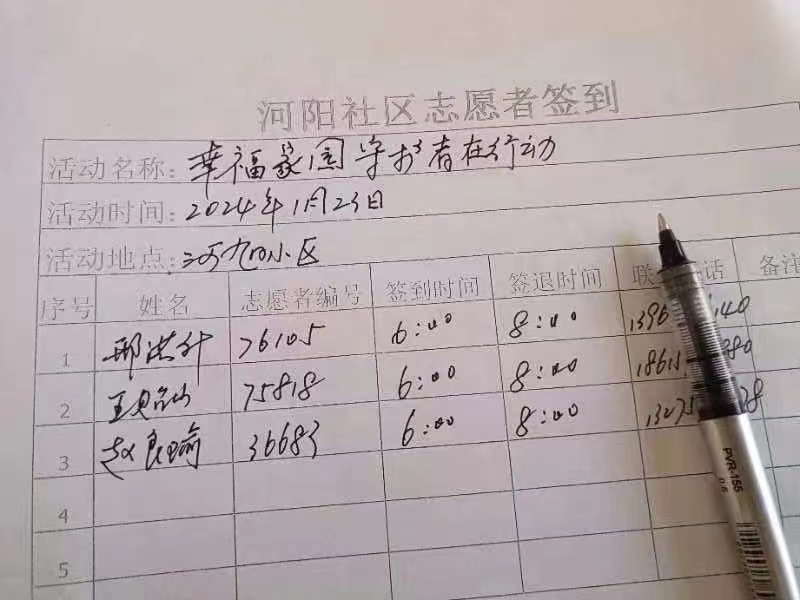 河阳社区志愿者签到
活动名称: 幸福家园守护者在行动
活动时间: 2024年1月23日
活动地点: 河阳小区
序号 姓名 志愿者编号 签到时间 签退时间 联 话 备注
1 邢洪升 76105 6:00 8:00 1396 140
2 王 75818 6:00 8:00 18615 380
3 赵良瑜 36683 6:00 8:00 13275 28
4
5
PVR-155
0.5